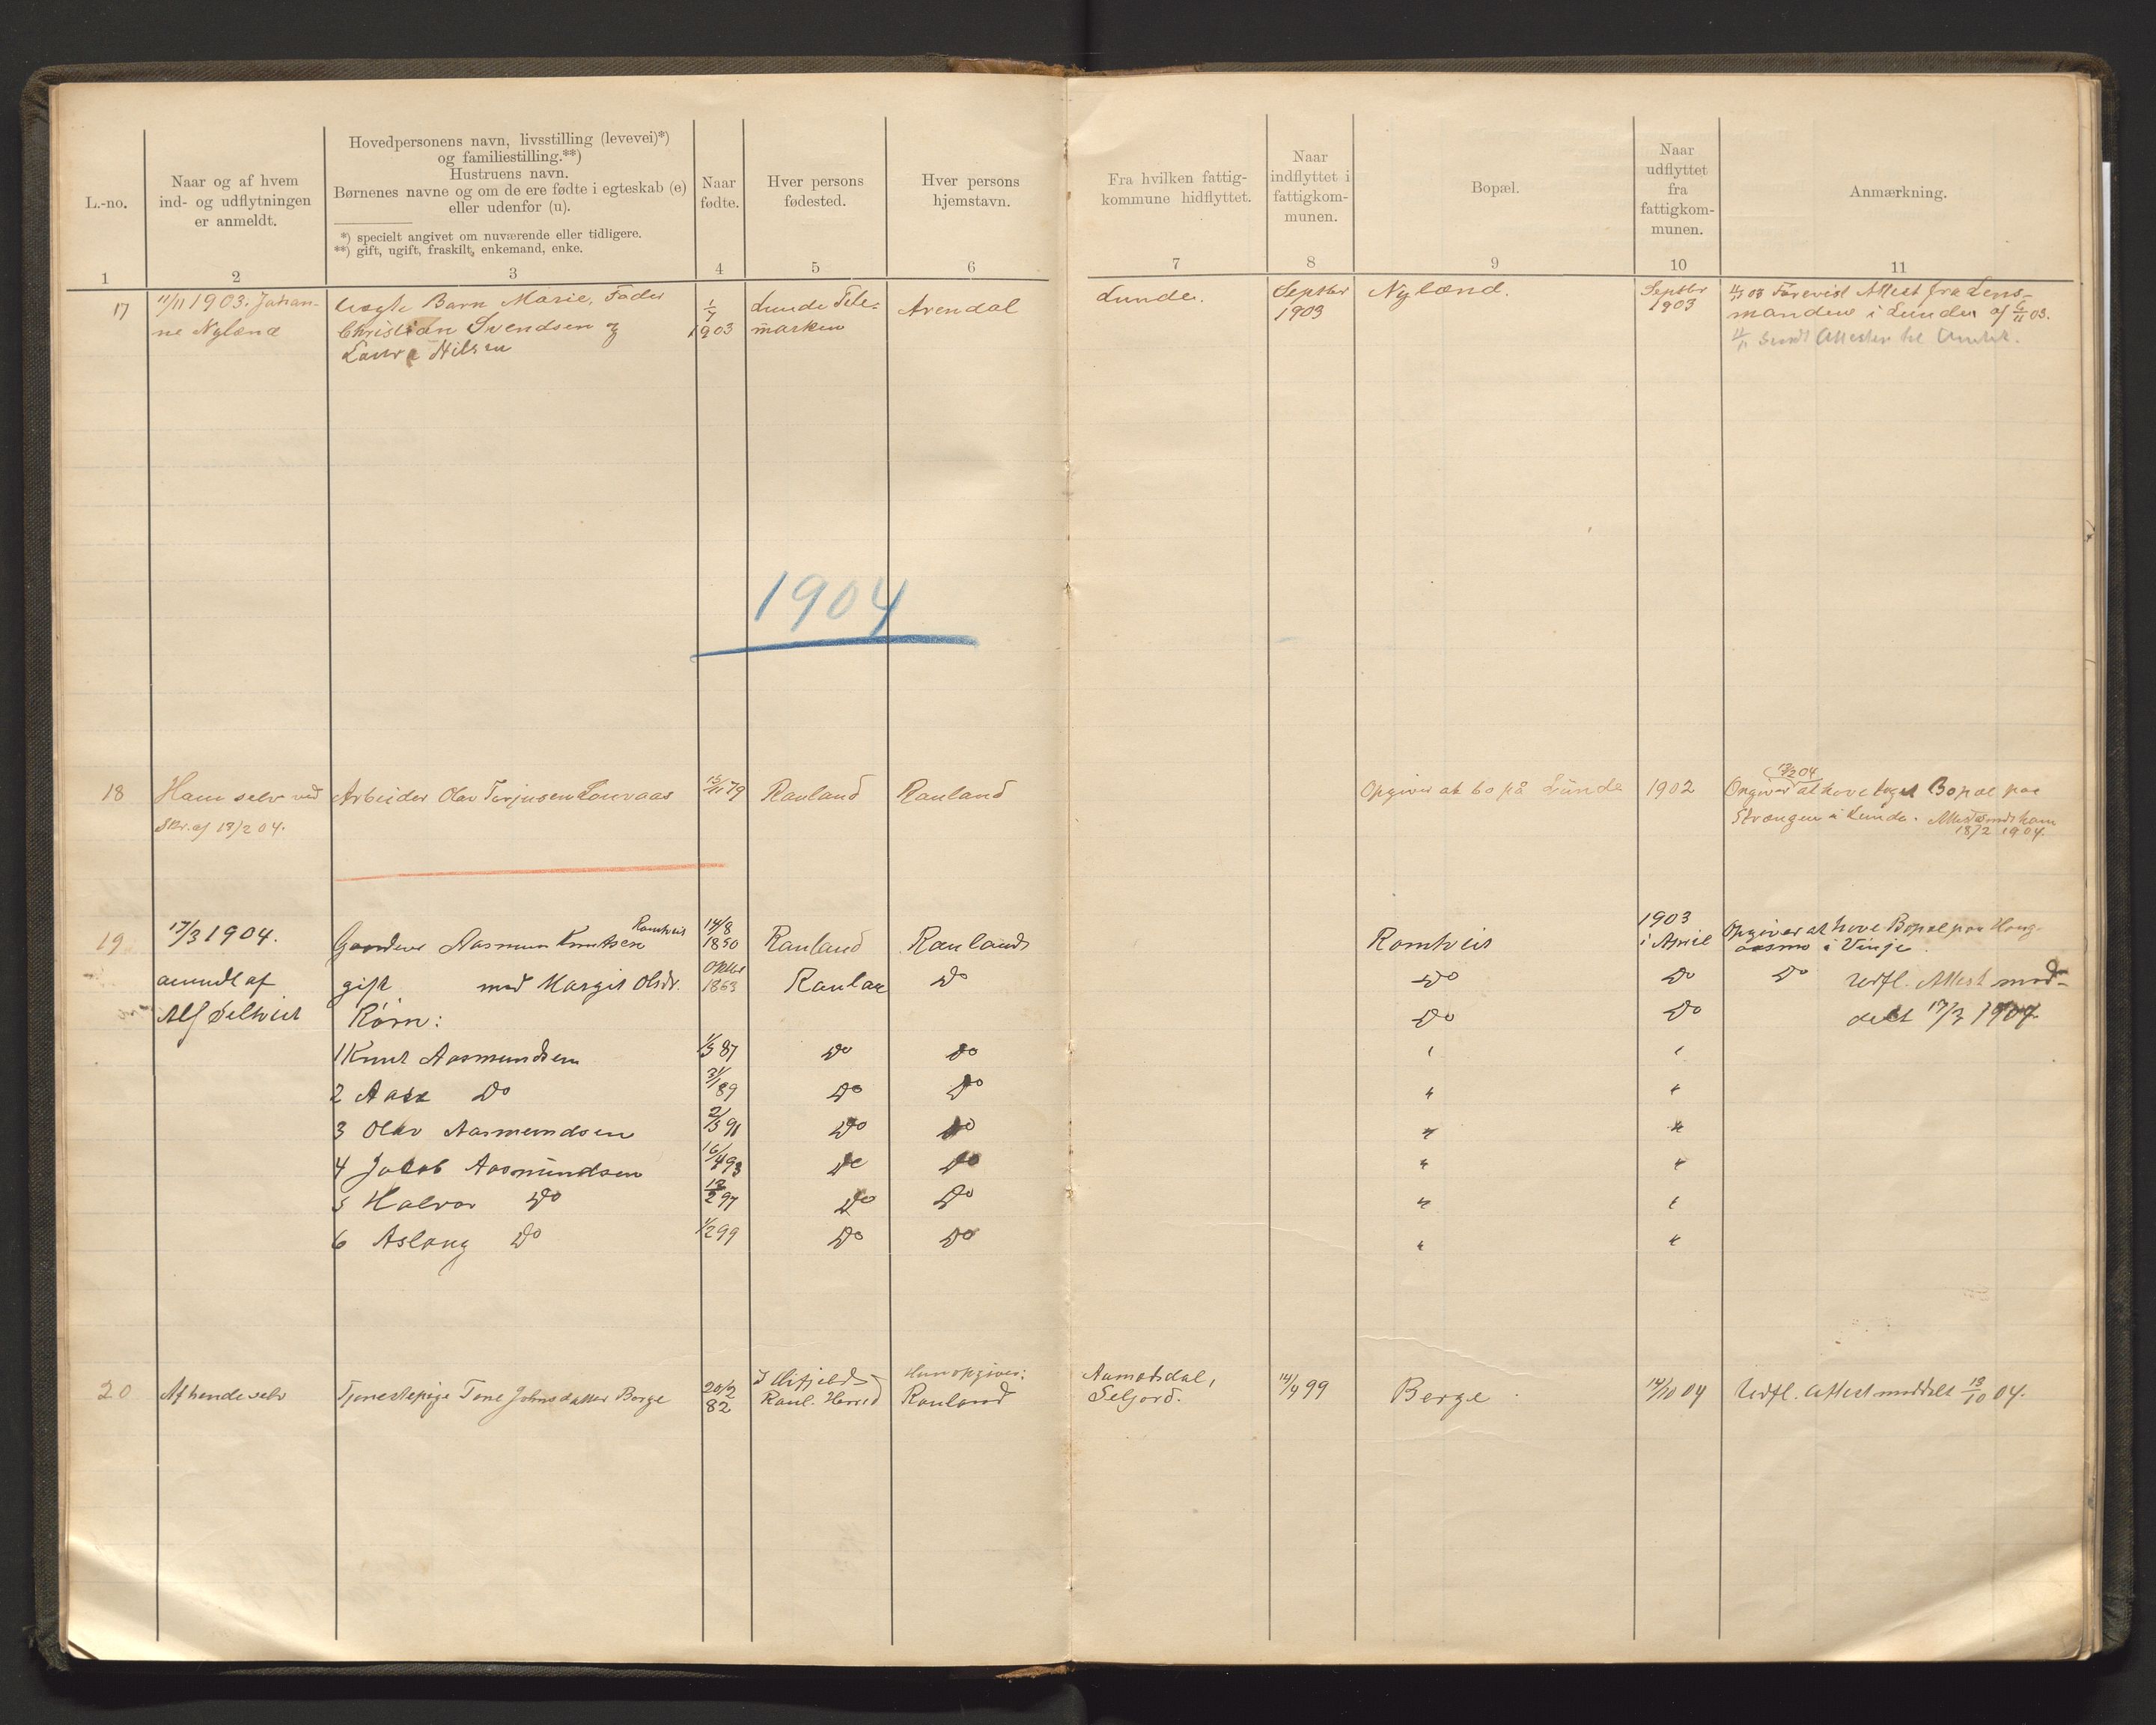 L.-no.
Naar og af hvem
ind- og udflytningen
er anmeldt.
Hovedpersonens navn, livsstilling (levevei)*)
og familiestilling.**)
Hustruens navn.
Børnenes navne og om de ere fødte i egteskab (e)
eller udenfor (u).
*) specielt angivet om nuværende eller tidligere.
**) gift, ugift, fraskilt, enkemand, enke.
Naar
fødte.
Hver persons
fødested.
Hver persons
hjemstavn.
Fra hvilken fattig-
kommune hidflyttet.
Naar
indflyttet i
fattigkom-
munen.
Bopæl.
Naar
udflyttet
fra
fattigkom-
munen.
Anmærkning.
1 2 3 4 5 6 7 8 9 10 11
17
11/11 1903. Johan-
ne Nyland
Uægte Barn Marie, Fader
Christian Svendsen og
Laura Nilsen
1/7
1903
Lunde Tele-
marken
Arendal
Lunde.
Septbr
1903
Nyland.
Septbr
1903
11/11 03 Forevist Attest fra Lens-
manden i Lunde af 6/11 03.
Sendt Attesten til Amtet.
1904
18
Ham selv ved
Skr. af 13/2 04.
Arbeider Olav Terjusen
15/11 79
Rauland
Rauland
Opgiver at bo på Lunde
1902
13/2 04
Opgiver at have taget Bopæl paa
Strængen i Lunde. Attest sendt ham
18/2 1904.
19
17/3 1904.
anmdl af
Romtveit
Gaardeier Aasmund Knutsen
14/8
1850
Rauland
Raulands
Romtveit
1903
i April
Opgiver at have Bopæl paa Haug-
aasmo i Vinje.
gift med Margit Olsdr.
Oktbr
1863
Raulan
Do
Do
Do
Do Udfl. Attest med-
Alf Selveit
Børn:
Do
Do
delt 17/3 1904
1 Knut Aasmundsen
1/3 87
Do
Do
"
"
2 Aase Do
31/1 89
Do
Do
"
"
3 Olav Aasmundsen
2/3 91
Do
Do
"
"
4 Jakob Aasmundsen
16/4 93
Do
Do
"
"
5 Halvor Do
12/2 97
Do
Do
"
"
6 Aslaug Do
1/2 99
Do
Do
"
"
20
Af hende selv
Tjenestepige Tone Johnsdatter Berge
20/2
82
Raul. Herred
Hun opgiver:
Rauland
Aamotsdal,
Seljord.
14/4 99
Berge
14/10 04
Udfl. Attest meddelt 13/10 04.